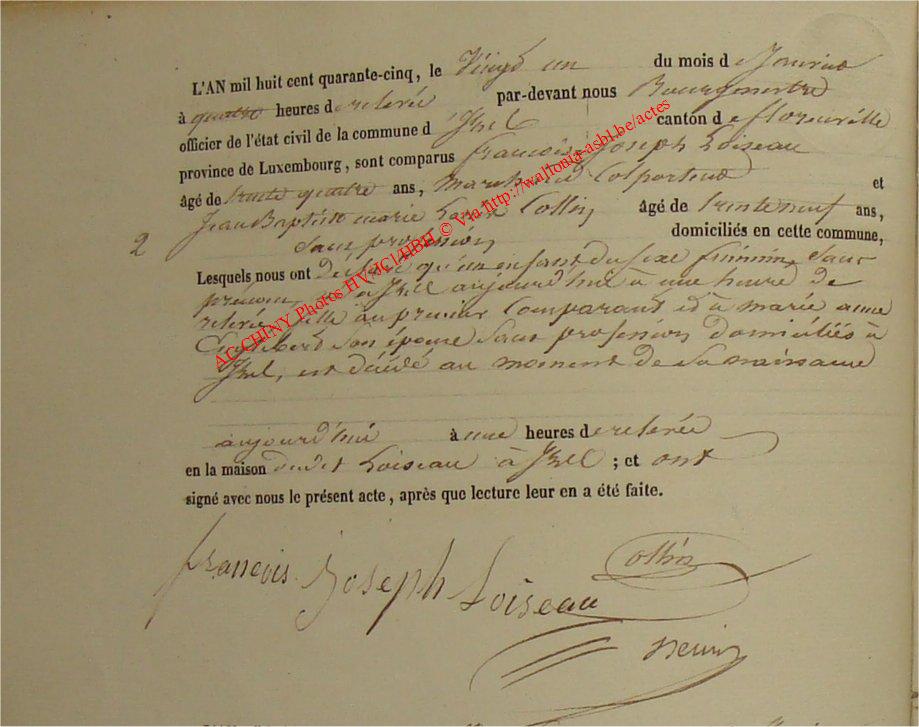 L'AN mil huit cent quarante-cinq, le Vingt un du mois de Janvier
à quatre heures de relevée par-devant nous Bourgmestre
officier de l'état civil de la commune d'Izel canton de florenville
province de Luxembourg, sont comparus francois Joseph Loiseau
âgé de trente quatre ans, marchand Colporteur et
Jean Baptiste marie Collin âgé de trente neuf ans,
2
Sans profession domiciliés en cette commune,
Lesquels nous ont déclaré qu'un enfant du sexe féminin, Sans
prenom, à Izel aujourd'hui à une heure de
relevée, au premier Comparant et à marie anne
son épouse sans profession, Domiciliés à
Izel, est décédé au moment de sa naissance
aujourd'hui à une heures de relevée
en la maison dudit Loiseau à Izel ; et ont
signé avec nous le présent acte, après que lecture leur en a été faite.
francois Joseph Loiseau
Collin
AC CHINY Photos © Via http://wallonia-asbl.be/actes